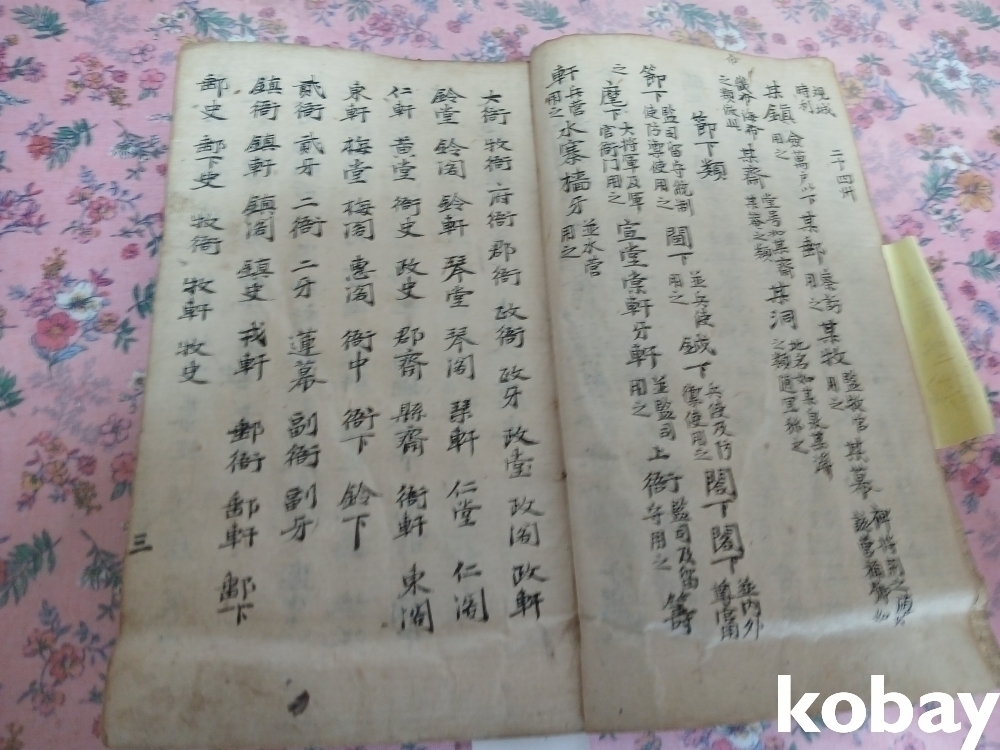 二十四州
某鎮 僉萬戶以下用之 某郵 察訪用之 某牧 監牧官用之 某幕
某齋 某洞 地名如某泉某潭之類通用
節下類
節下 監司留守統制使防禦使用之 閤下 並兵使用之 鉞下 兵使及防禦使用之 閤下 閤下
之 麾下 大將軍及軍官衙門用之 宣堂 棠軒 牙軒 並監司用之 上衙 監司及留守用之 籌
軒 下兵營用之 水寨 檣牙 並水營用之
大衙 牧衙 府衙 郡衙 政衙 政牙 政堂 政閣 政軒
鈴堂 鈴閣 鈴軒 琴堂 琴閣 琴軒 仁堂 仁閣
仁軒 黃堂 衙史 政史 郡齋 縣齋 衙軒 東閣
東軒 梅堂 梅閣 惠閣 衙中 衙下 鈴下
貳衙 貳牙 二衙 二牙 蓮幕 副衙 副牙
鎮衙 鎮軒 鎮閣 鎮史 戎軒 郵衙 郵軒 郵下
郵史 郵下史 牧衙 牧軒 牧史
三
kobay